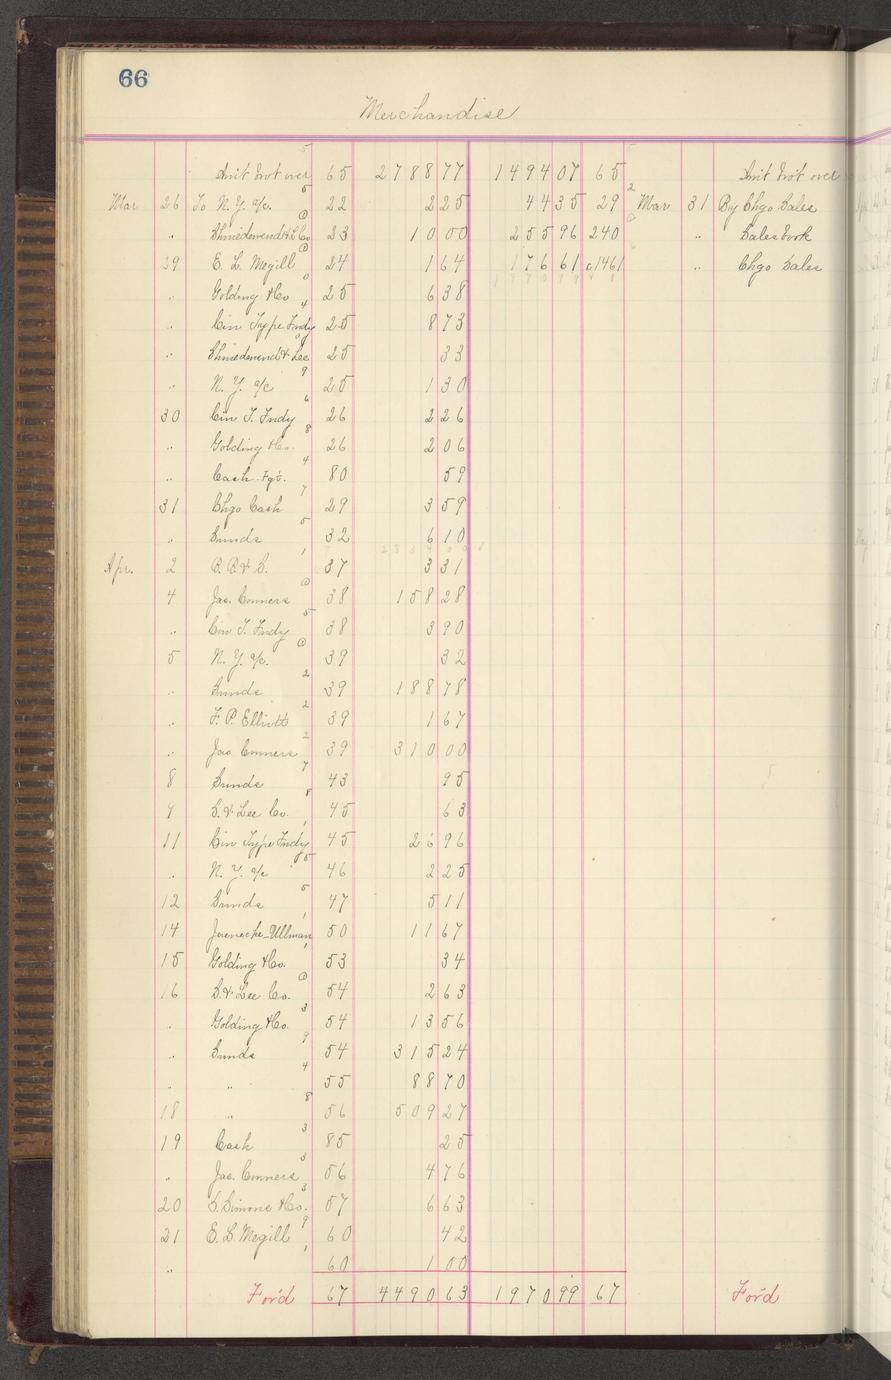 66
Merchandise
Am't bro't over 65 2788 77 1494 07 65 Am't bro't over
Mar 26 To N. Y. a/c 22 2 25 44 35 29 Mar 31 By Chgo Sales
" Shniedewend & L Co 23 10 00 255 96 240 " Sales book
29 E. L. Megill 24 1 64 176 61 c/461 " Chgo Sales
" Golding & Co 25 6 38
" Cin Type Fndy 25 8 73
" Shniedewend & Lee 25 33
" N. Y. a/c 25 1 30
30 Cin T. Fndy 26 2 26
" Golding & Co. 26 2 06
" Cash Fgt. 80 59
31 Chgo Cash 29 3 59
" Sunds 32 6 10
Apr. 2 B. B. & S. 37 3 31
4 Jas. Conners 38 158 28
" Cin T. Fndy 38 3 90
5 N. Y. a/c. 39 32
" Sunds 39 188 78
" F. P. Elliott 39 1 67
" Jas Conners 39 310 00
8 Sunds 43 95
9 S. & Lee Co. 45 63
11 Cin Type Fndy 45 26 96
" N. Y. a/c 46 2 25
12 Sunds 47 5 11
14 Jaenecke-Ullman 50 11 67
15 Golding & Co. 53 34
16 S. & Lee Co. 54 2 63
" Golding & Co. 54 13 56
" Sunds 54 315 24
" " 55 88 70
18 " 56 509 27
19 Cash 85 25
" Jas. Conners 56 4 76
20 S. Simons & Co. 57 6 63
21 E. L. Megill 60 42
" 60 1 00
For'd 67 4490 63 1970 99 67 For'd